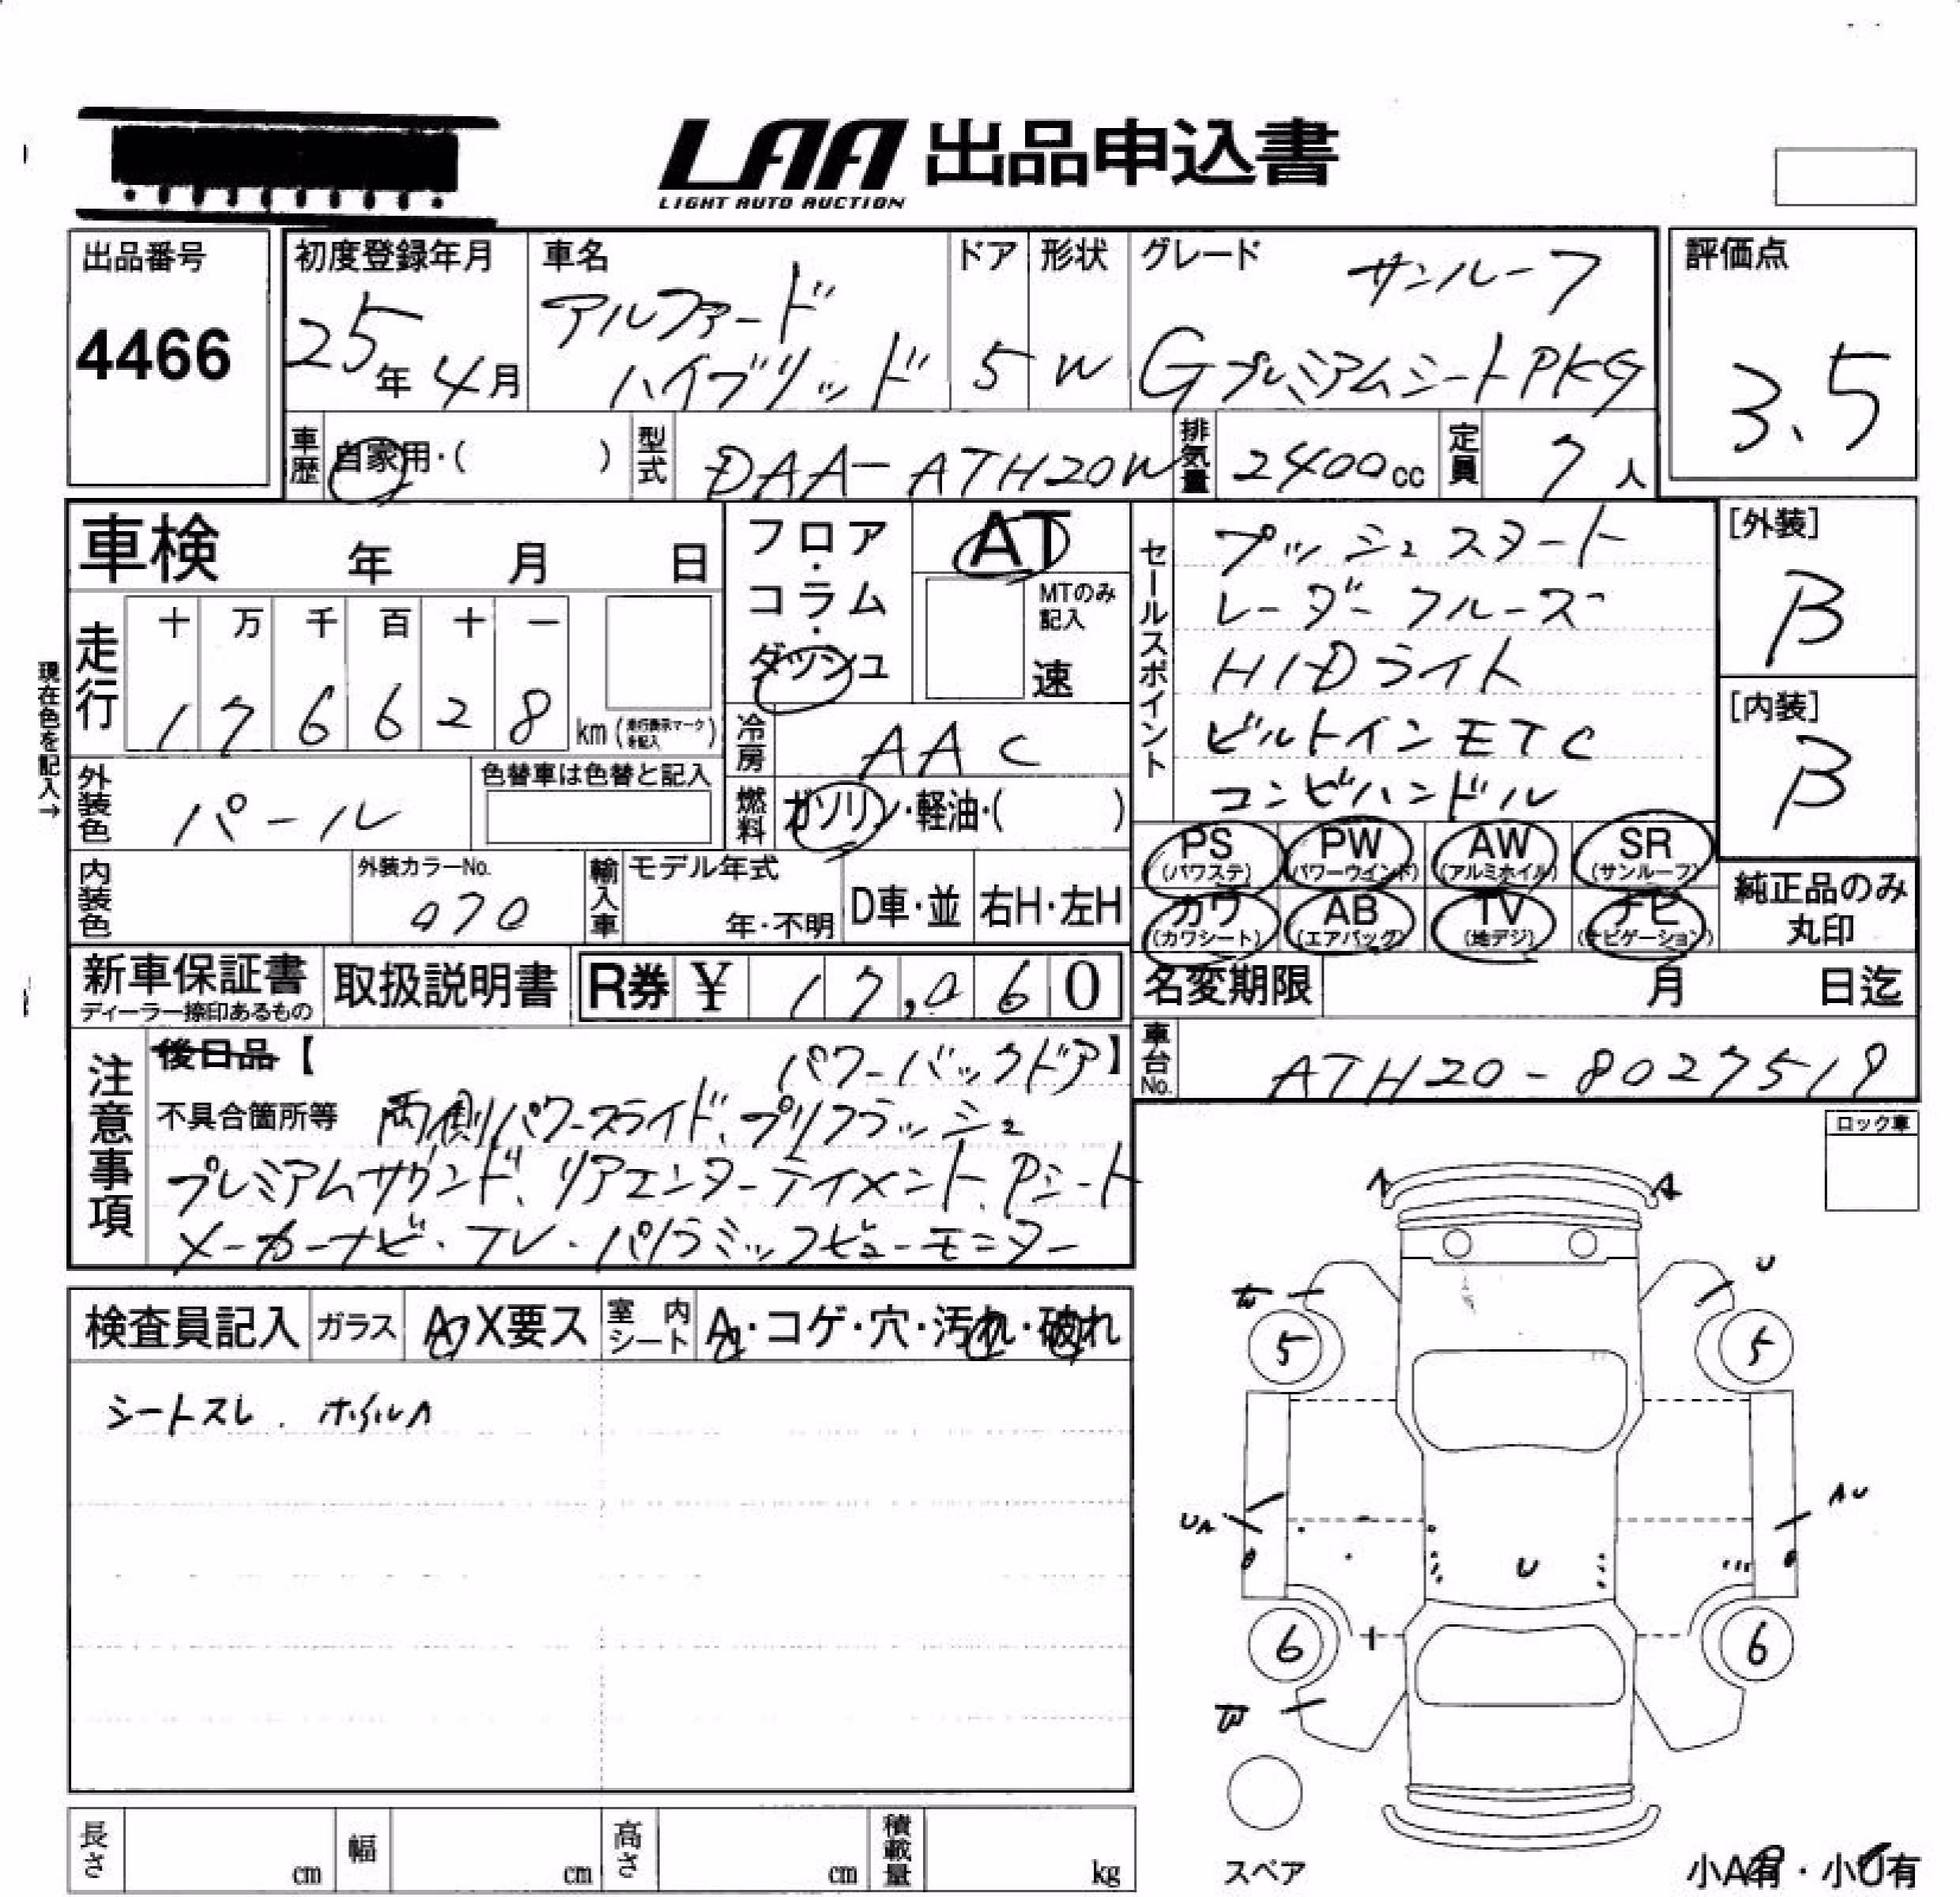 LAA 出品申込書
LIGHT AUTO AUCTION
出品番号
4466
初度登録年月
25年4月
車名
アルファード
ハイブリッド
ドア
5
形状
W
グレード
サンルーフ
GプレミアムシートPKG
評価点
3.5
車歴
自家用・( )
型式
DAA-ATH20W
排気量
2400cc
定員
7人
車検 年 月 日
走行
十 万 千 百 十 一
1 7 6 6 2 8 km (走行表示マークを記入)
現在色を記入→
フロア・コラム・ダッシュ
AT
MTのみ記入
速
冷房
AAC
燃料
ガソリン・軽油・( )
外装色
パール
色替車は色替と記入
内装色
外装カラーNo.
070
輸入車
モデル年式
年・不明
D車・並
右H・左H
セールスポイント
プッシュスタート
レーダークルーズ
HIDライト
ビルトインETC
コンビハンドル
[外装]
B
[内装]
B
PS (パワステ)
PW (パワーウインド)
AW (アルミホイル)
SR (サンルーフ)
カワ (カワシート)
AB (エアバッグ)
TV (地デジ)
ナビ (ナビゲーション)
純正品のみ丸印
新車保証書
ディーラー捺印あるもの
取扱説明書
R券 ¥ 17,060
名変期限 月 日迄
車台No.
ATH20-8027519
注意事項
後日品【 パワーバックドア】
不具合箇所等 両側パワースライド、プリクラッシュ
プレミアムサウンド、リアエンターテイメント、Pシート
メーカーナビ・TV・パノラミックビューモニター
検査員記入
ガラス
A X要ス
室内シート
A・コゲ・穴・汚れ・破れ
シートスレ . ホイルA
ロック車
A A
U
5 5
UA
AU
U
6 6
スペア
小A有・小U有
長さ cm
幅 cm
高さ cm
積載量 kg